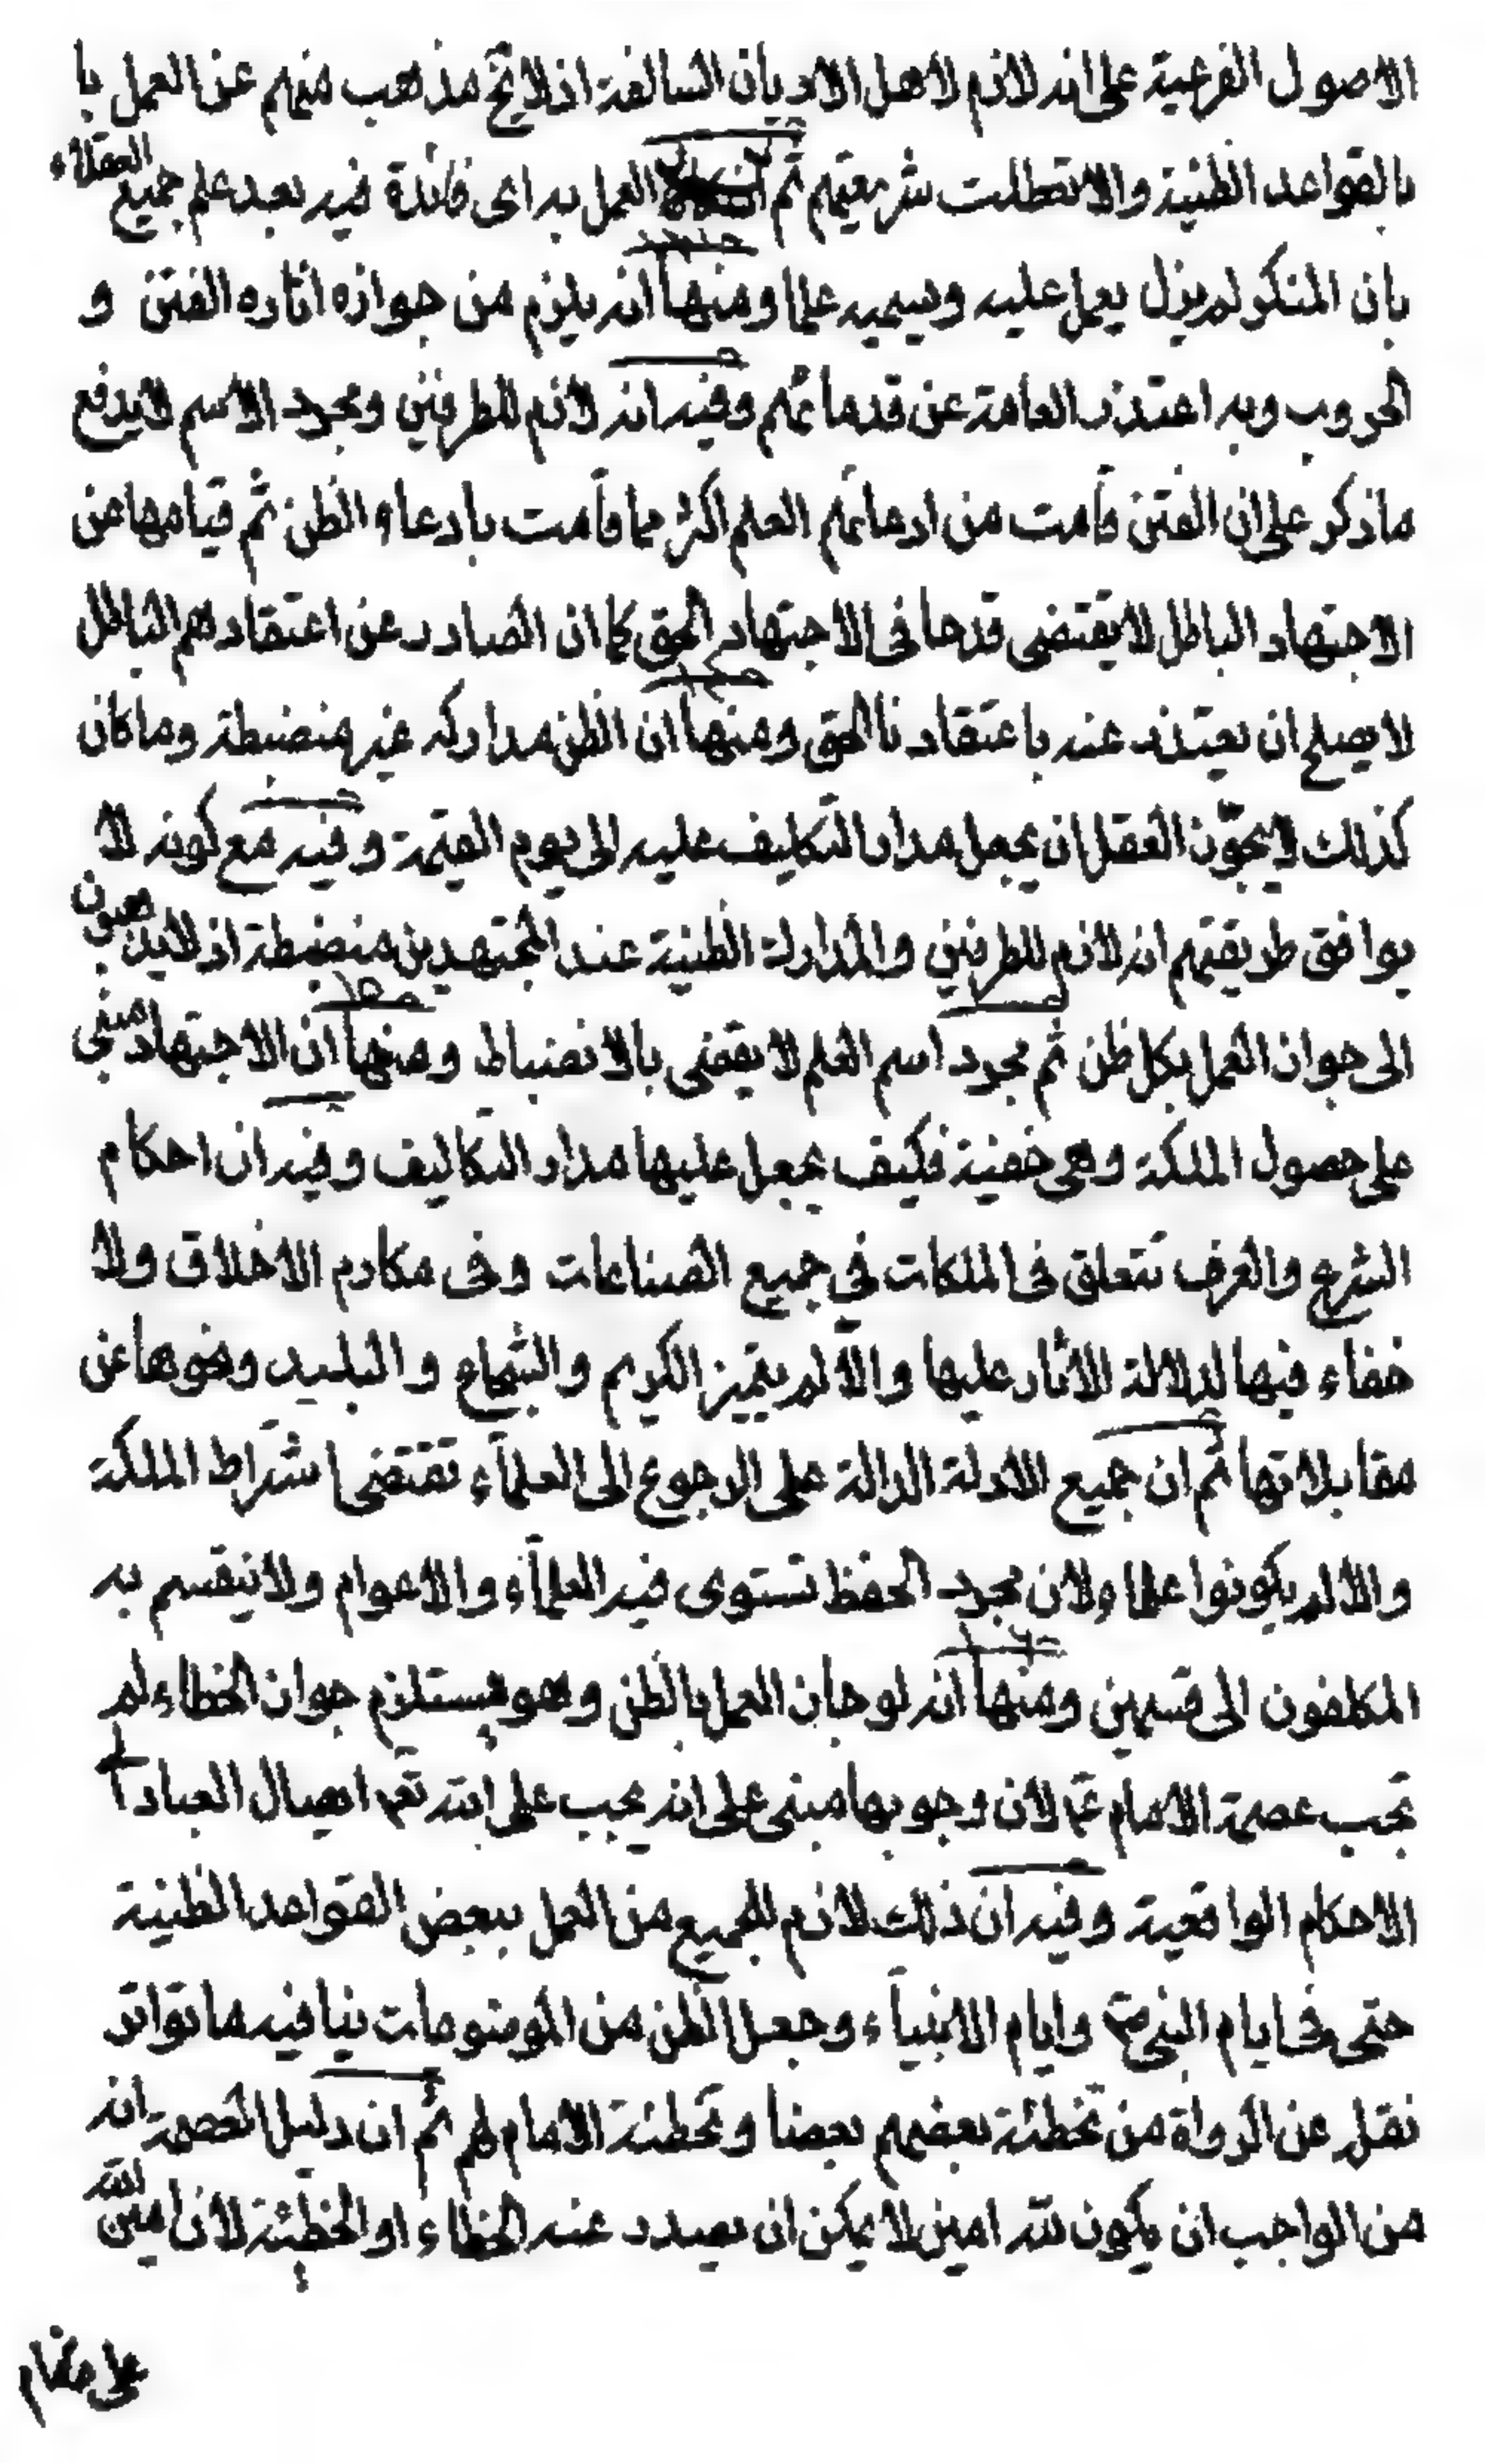 الاصول الفرعية على انه لازم لاهل الاديان السالفة اذ لا يخ مذهب منهم عن العمل با
بالقواعد الظنية والا تعطلت شريعتهم ثم العمل به اى فائدة فيه بعد علم جميع العقلاء
بان المنكر لم يزل يعمل عليه ويسميه علما ومنها انه يلزم من جوازه اثاره الفتن و
الحروب وبه اعتذر العامة عن قدمائهم وفيه انه لازم للطرفين ومجرد الاسم لا يدفع
ماذكر على ان الفتن قامت من ادعائهم العلم اكثر مما قامت بادعاء الظن ثم قيامها من
الاجتهاد الباطل لا يقتضى قدحا فى الاجتهاد الحق كما ان الصادر عن اعتقادهم الباطل
لا يصلح ان يعتذر عنه باعتقادنا الحق ومنها ان الظن مداركه غير منضبطة وما كان
كذلك لا يجوّز العقل ان يجعل مدار التكليف عليه الى يوم القيمة وفيه مع كونه لا
يوافق طريقتهم انه لازم للطرفين والمدارك الظنية عند المجتهدين منضبطة اذ لا يذهبون
الى جواز العمل بكل ظن ثم مجرد اسم العلم لا يقضى بالانضباط ومنها ان الاجتهاد مبنى
على حصول الملكة وهى خفية فكيف يجعل عليها مدار التكاليف وفيه ان احكام
الشرع والعرف تتعلق فى الملكات في جميع الصناعات وفى مكارم الاخلاق ولا
خفاء فيها لدلالة الاثار عليها والّا لم يتميز الكريم والشجاع والبليد ونحوها عن
مقابلاتها ثم ان جميع الادلة الدالة على الرجوع الى العلمآء تقتضى اشتراط الملكة
والا لم يكونوا علماء ولان مجرد الحفظ تستوى فيه العلمآء والاعوام ولا ينقسم به
المكلفون الى قسمين ومنها انه لو جاز العمل بالظن وهو يستلزم جواز الخطاء لم
تجب عصمة الامام عم لان وجوبها مبنى على انه يجب على الله تعم ايصال العباد
الاحكام الواقعية وفيه ان ذلك لازم للجميع من العمل ببعض القواعد الظنية
حتى فى ايام النبى ص وايام الانبيآء وجعل الظن من الموضوعات ينافيه ما تواتر
نقله عن الرواة من تخطئة بعضهم بعضا وتخطئة الامام لهم ثم ان دليل العصمة انه
من الواجب ان يكون لله امين لا يمكن ان يصدر عنه الخطاء او الخطيئة لان امين الله
على